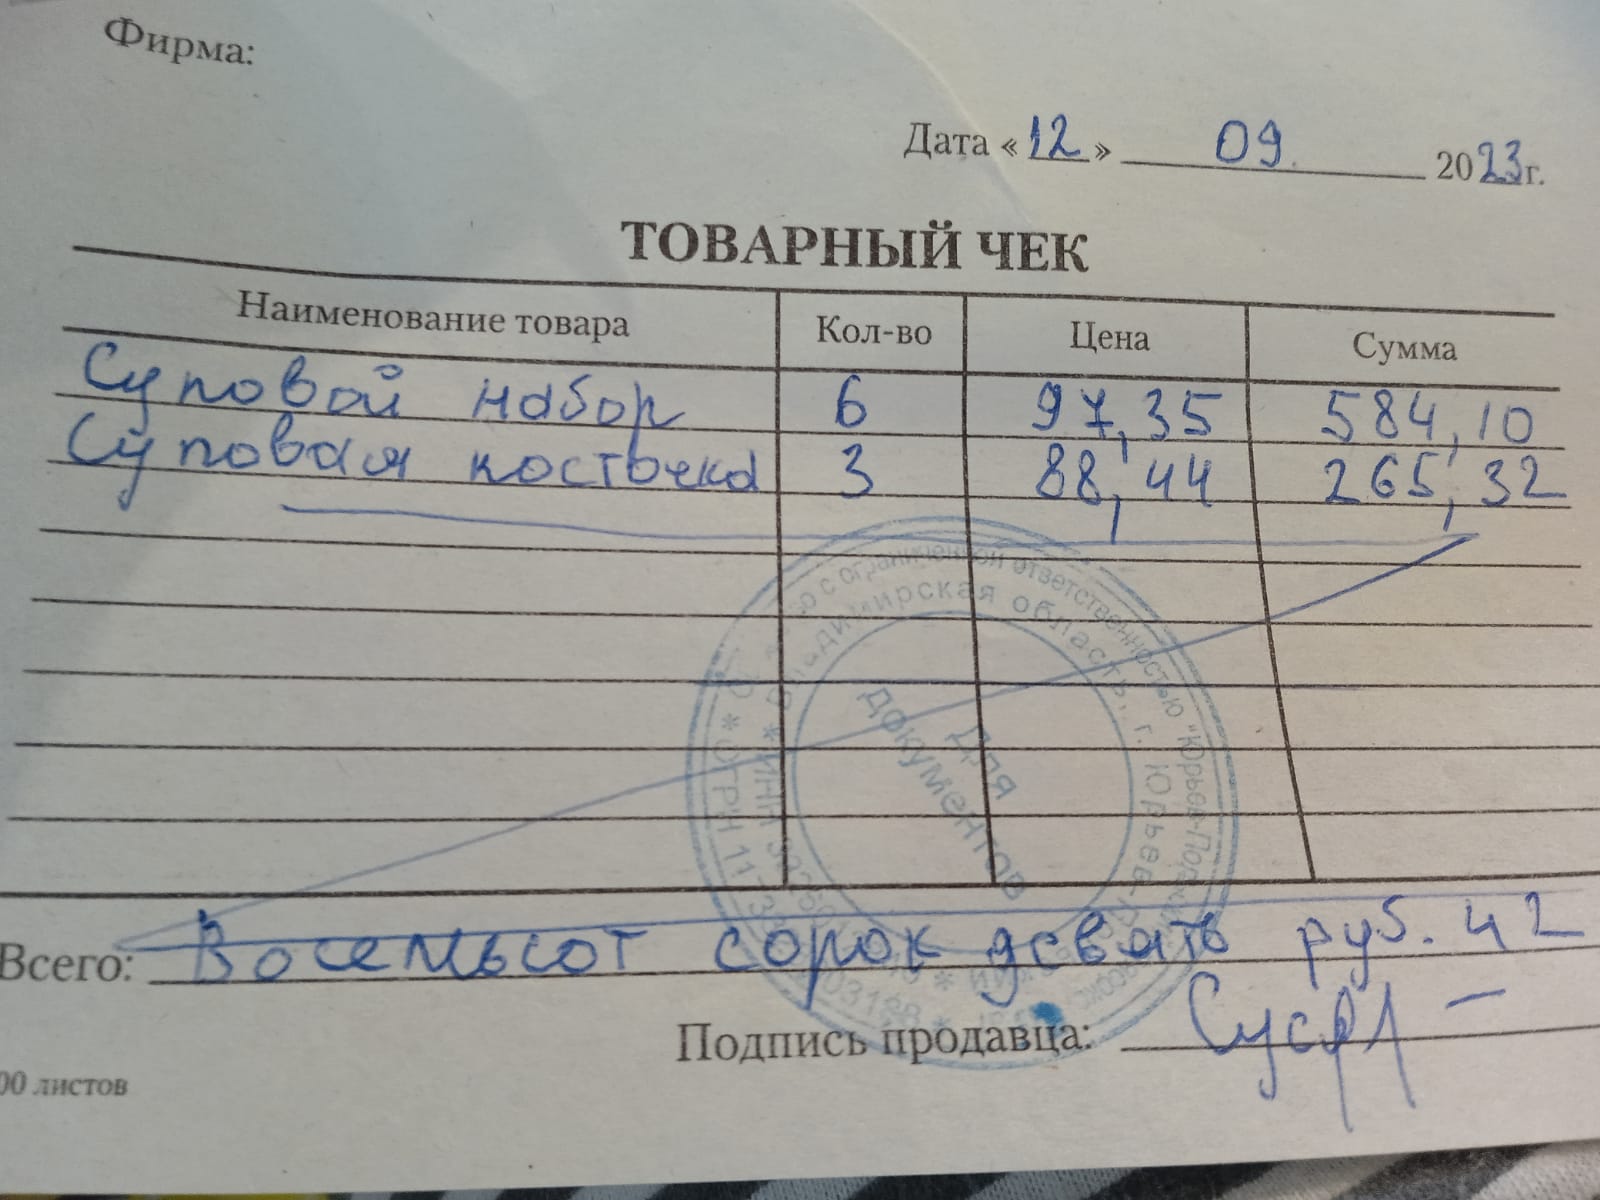 Фирма:
Дата «12» 09. 2023г.
ТОВАРНЫЙ ЧЕК
Наименование товара Кол-во Цена Сумма
Суповой набор 6 97,35 584,10
Суповая косточка 3 88,44 265,32
с ограниченной ответственностью "Юрьев-Поль
Владимирская область, г. Юрьев-П
* ОГРН 11
* ИНН
Для
документов
Всего: Восемьсот сорок девять руб. 42
Подпись продавца:
00 листов